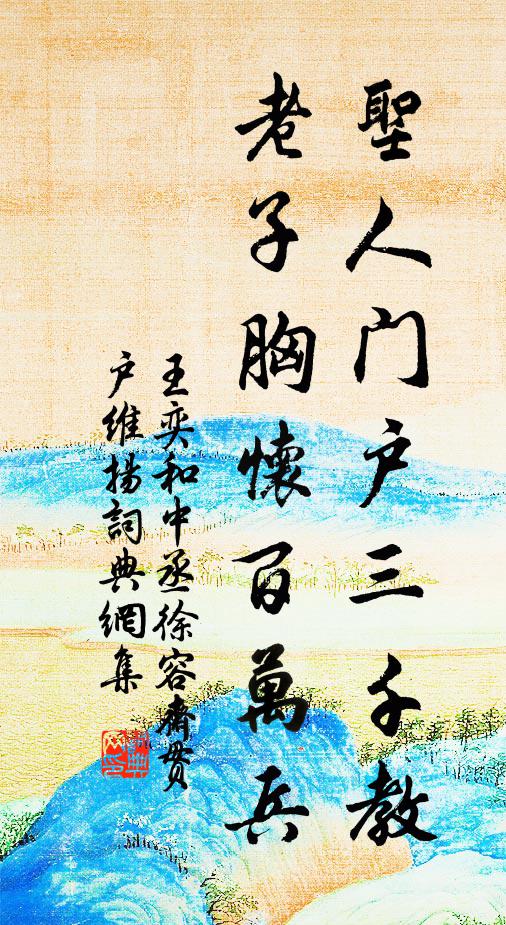 聖人门户三千教
老子胸懷百萬兵
王奕和中丞徐容齋贯
户維揚詞典網集